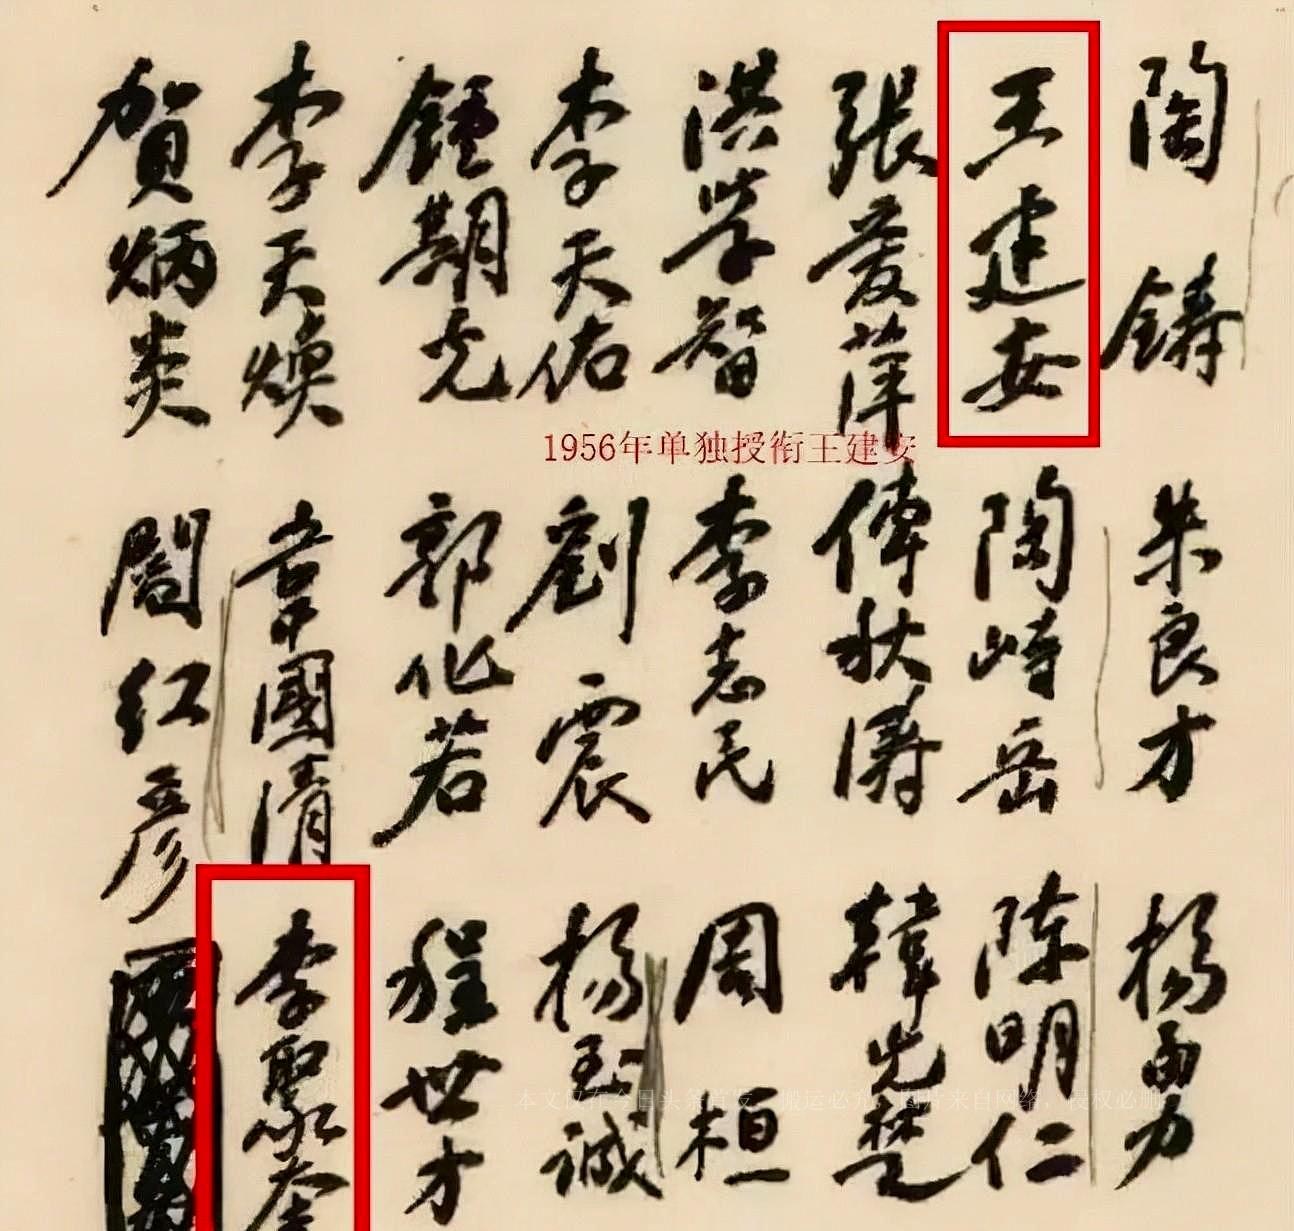 陶鑄
王建安
張愛萍
洪学智
李天佑
鍾期光
李天焕
賀炳炎
1956年单独授衔王建安
朱良才
陶峙岳
傅秋濤
李志民
劉震
郭化若
韋國清
閻红彦
楊勇
陈明仁
韓先楚
周桓
楊至诚
程世才
李聚奎
本文仅在今日头条首发，搬运必究，图片来自网络，侵权必删